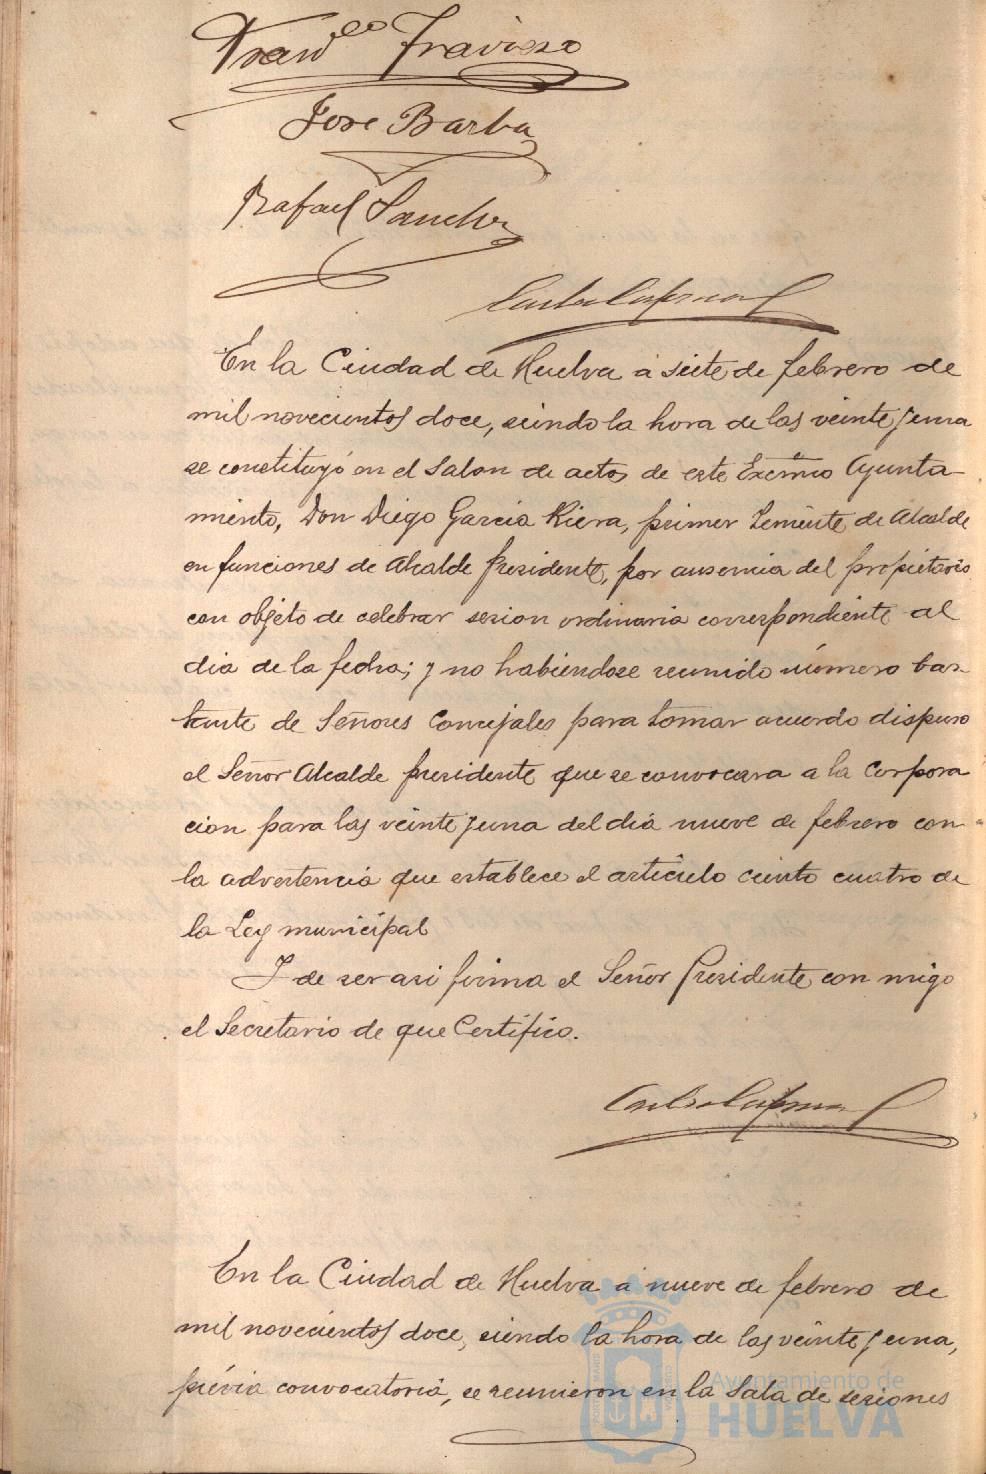 Franco Travieso
Jose Barba
Rafael Sanchez
En la Ciudad de Huelva a siete de febrero de
mil novecientos doce, siendo la hora de las veinte y una
se constituyó en el Salon de actos de este Excmo Ayunta-
miento, Don Diego Garcia Riera, primer Teniente de Alcalde
en funciones de Alcalde presidente, por ausencia del propietario
con objeto de celebrar sesion ordinaria correspondiente al
dia de la fecha; y no habiendose reunido número bas-
tante de Señores Concejales para tomar acuerdo dispuso
el Señor Alcalde presidente que se convocara a la Corpora
cion para las veinte y una del dia nueve de febrero con
la advertencia que establece el articulo ciento cuatro de
la Ley municipal
Y de ser asi firma el Señor Presidente con migo
el Secretario de que Certifico.
En la Ciudad de Huelva a nueve de febrero de
mil novecientos doce, siendo la hora de las veinte y una,
prévia convocatoria, se reunieron en la Sala de sesiones
Ayuntamiento de
HUELVA